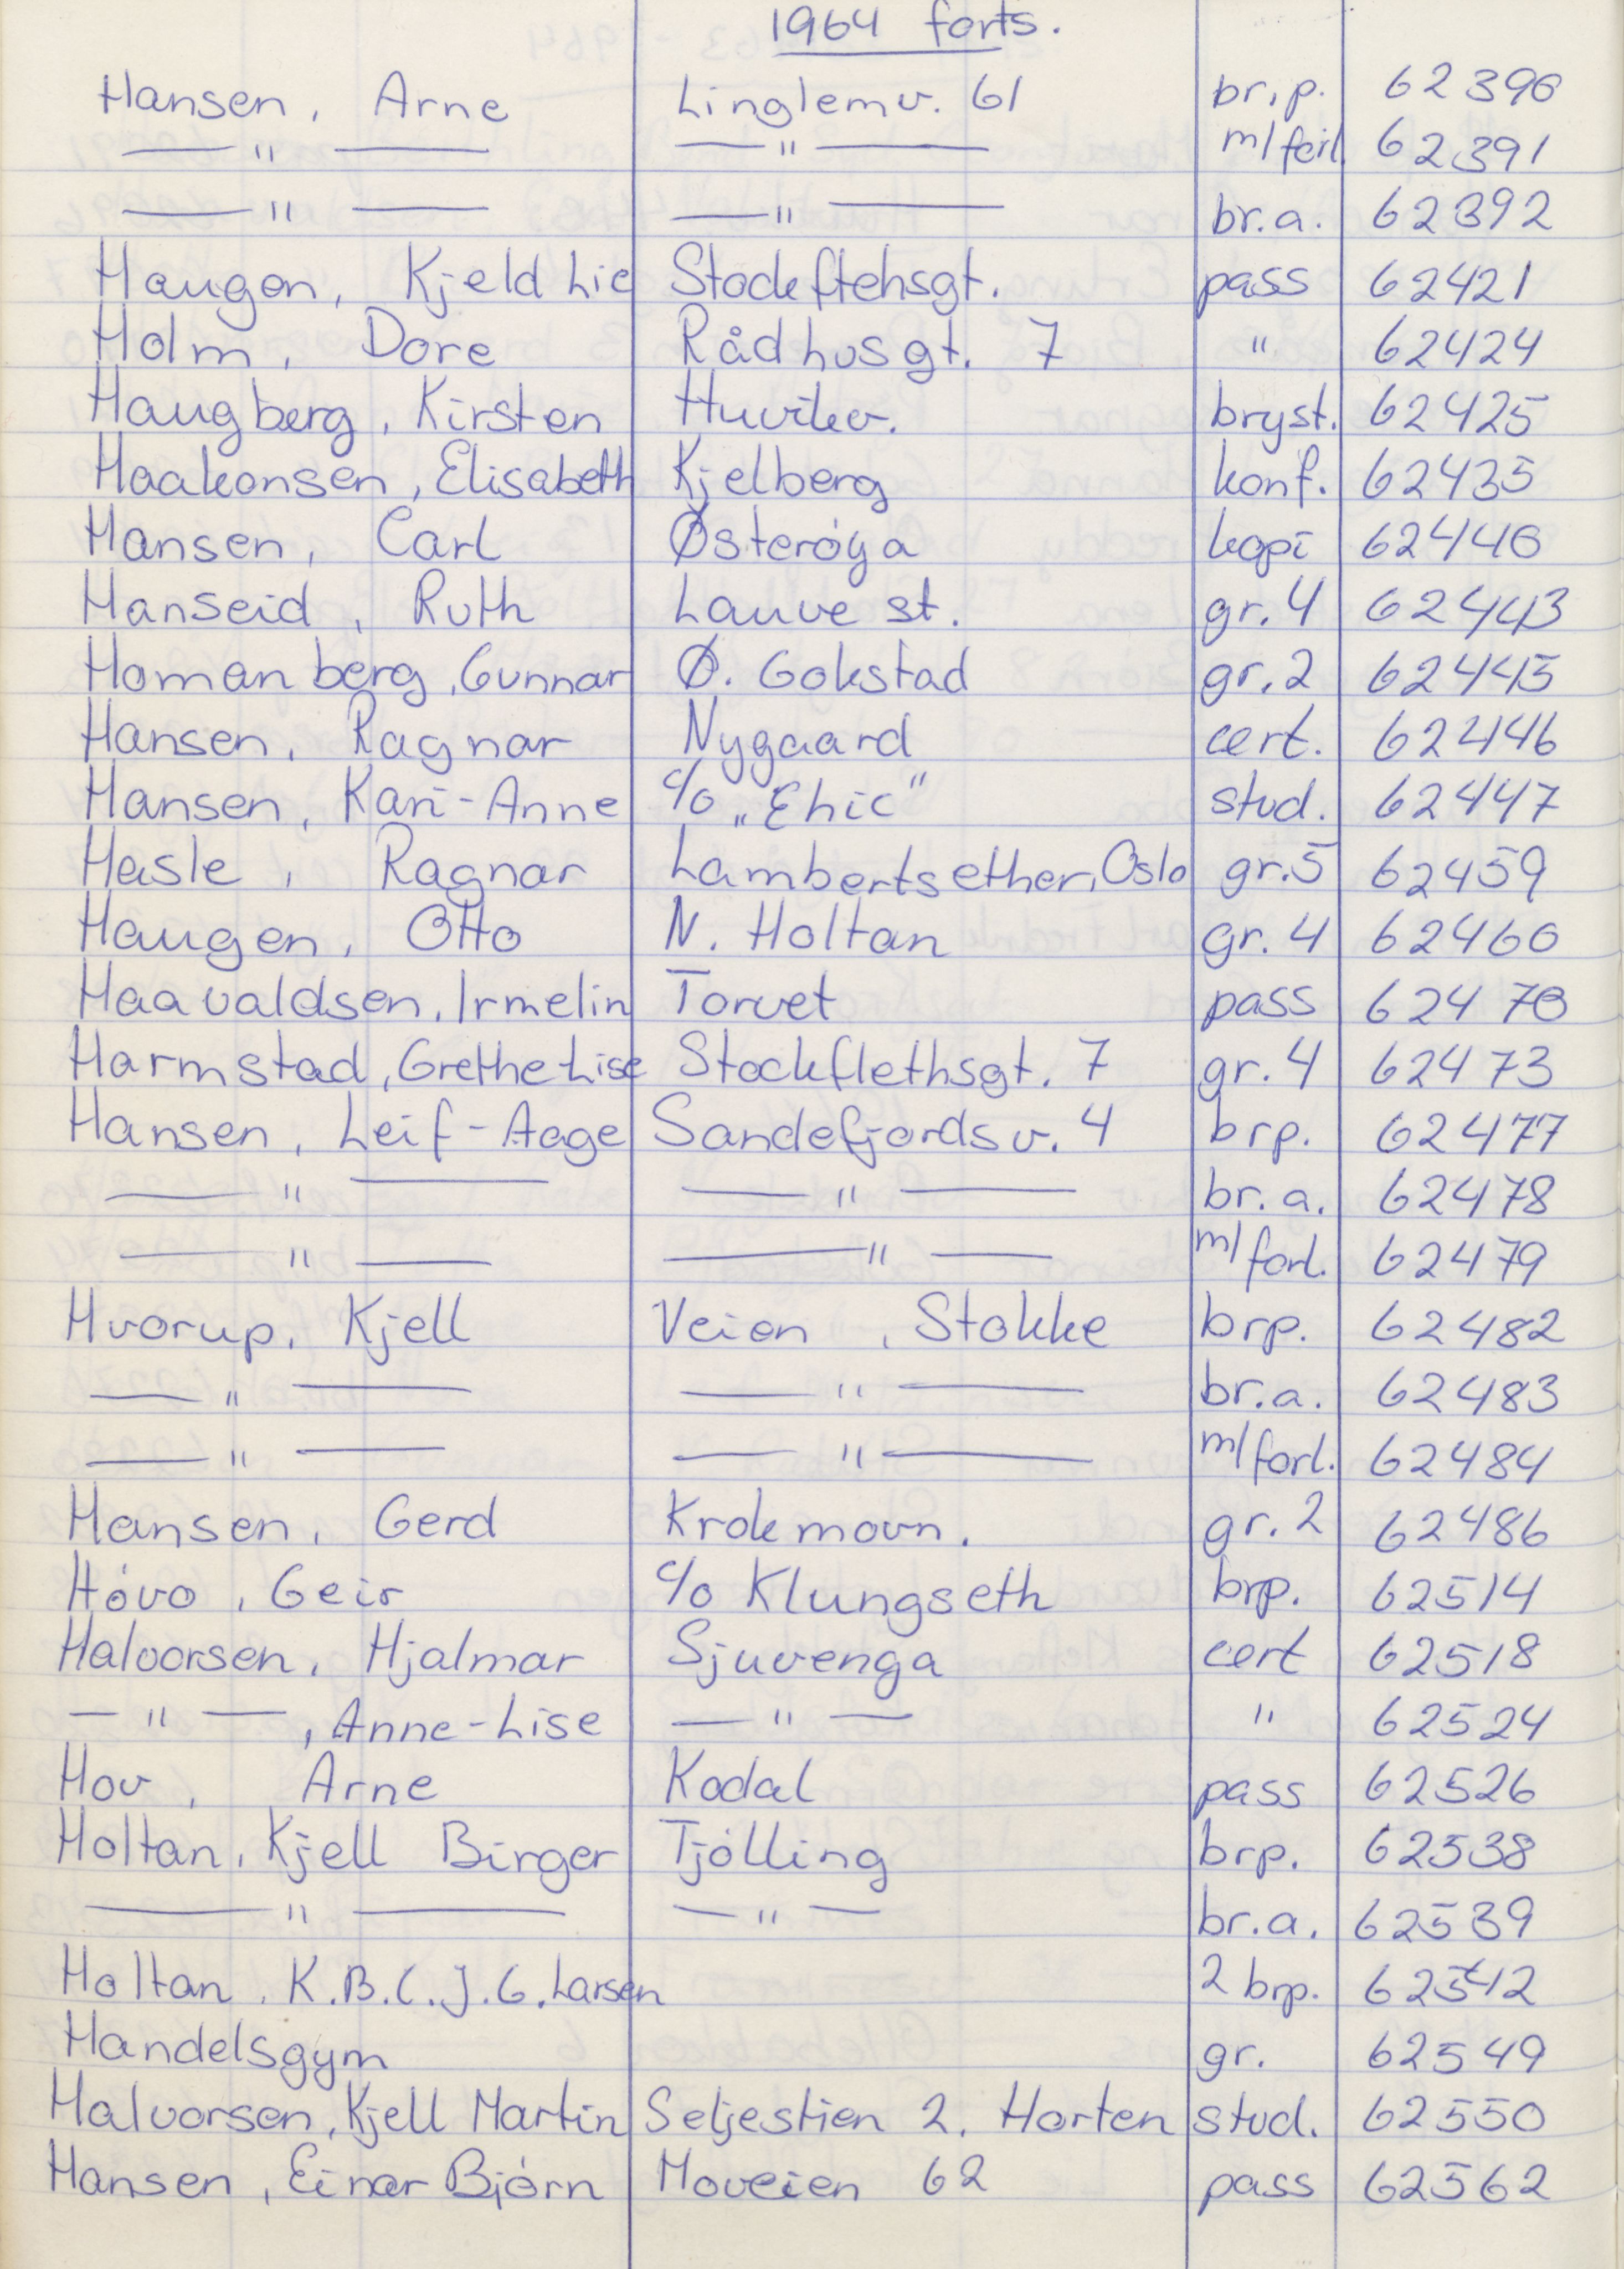 1964 forts.
Hansen, Arne Linglemv. 61 br.p. 62390
— " — — " — m/feil. 62391
— " — — " — br.a. 62392
Haugen, Kjeld Lie Stockftehsgt. pass 62421
Holm, Dore Rådhusgt. 7 " 62424
Haugberg, Kirsten Huvikv. bryst. 62425
Haakonsen, Elisabeth Kjelberg konf. 62435
Hansen, Carl Østerøya kopi 62440
Hanseid, Ruth Lauve st. gr. 4 62443
Homanberg, Gunnar Ø. Gokstad gr. 2 62445
Hansen, Ragnar Nygaard cert. 62446
Hansen, Kari-Anne c/o „Ehic" stud. 62447
Hasle, Ragnar Lambertsether, Oslo gr. 5 62459
Haugen, Otto N. Holtan gr. 4 62460
Haavaldsen, Irmelin Torvet pass 62470
Harmstad, Grethe Lise Stockflethsgt. 7 gr. 4 62473
Hansen, Leif-Aage Sandefjordsv. 4 brp. 62477
— " — — " — br. a. 62478
— " — — " — m/forl. 62479
Hvorup, Kjell Veien, Stokke brp. 62482
— " — — " — br.a. 62483
— " — — " — m/forl. 62484
Hansen, Gerd Krokemovn. gr. 2 62486
Høvo, Geir c/o Klungseth brp. 62514
Halvorsen, Hjalmar Sjuvenga cert 62518
— " —, Anne-Lise — " — " 62524
Hov, Arne Kodal pass 62526
Holtan, Kjell Birger Tjølling brp. 62538
— " — — " — br.a. 62539
Holtan, K.B.C.J.G. Larsen 2 brp. 62542
Handelsgym gr. 62549
Halvorsen, Kjell Martin Seljestien 2, Horten stud. 62550
Hansen, Einar Bjørn Moveien 62 pass 62562